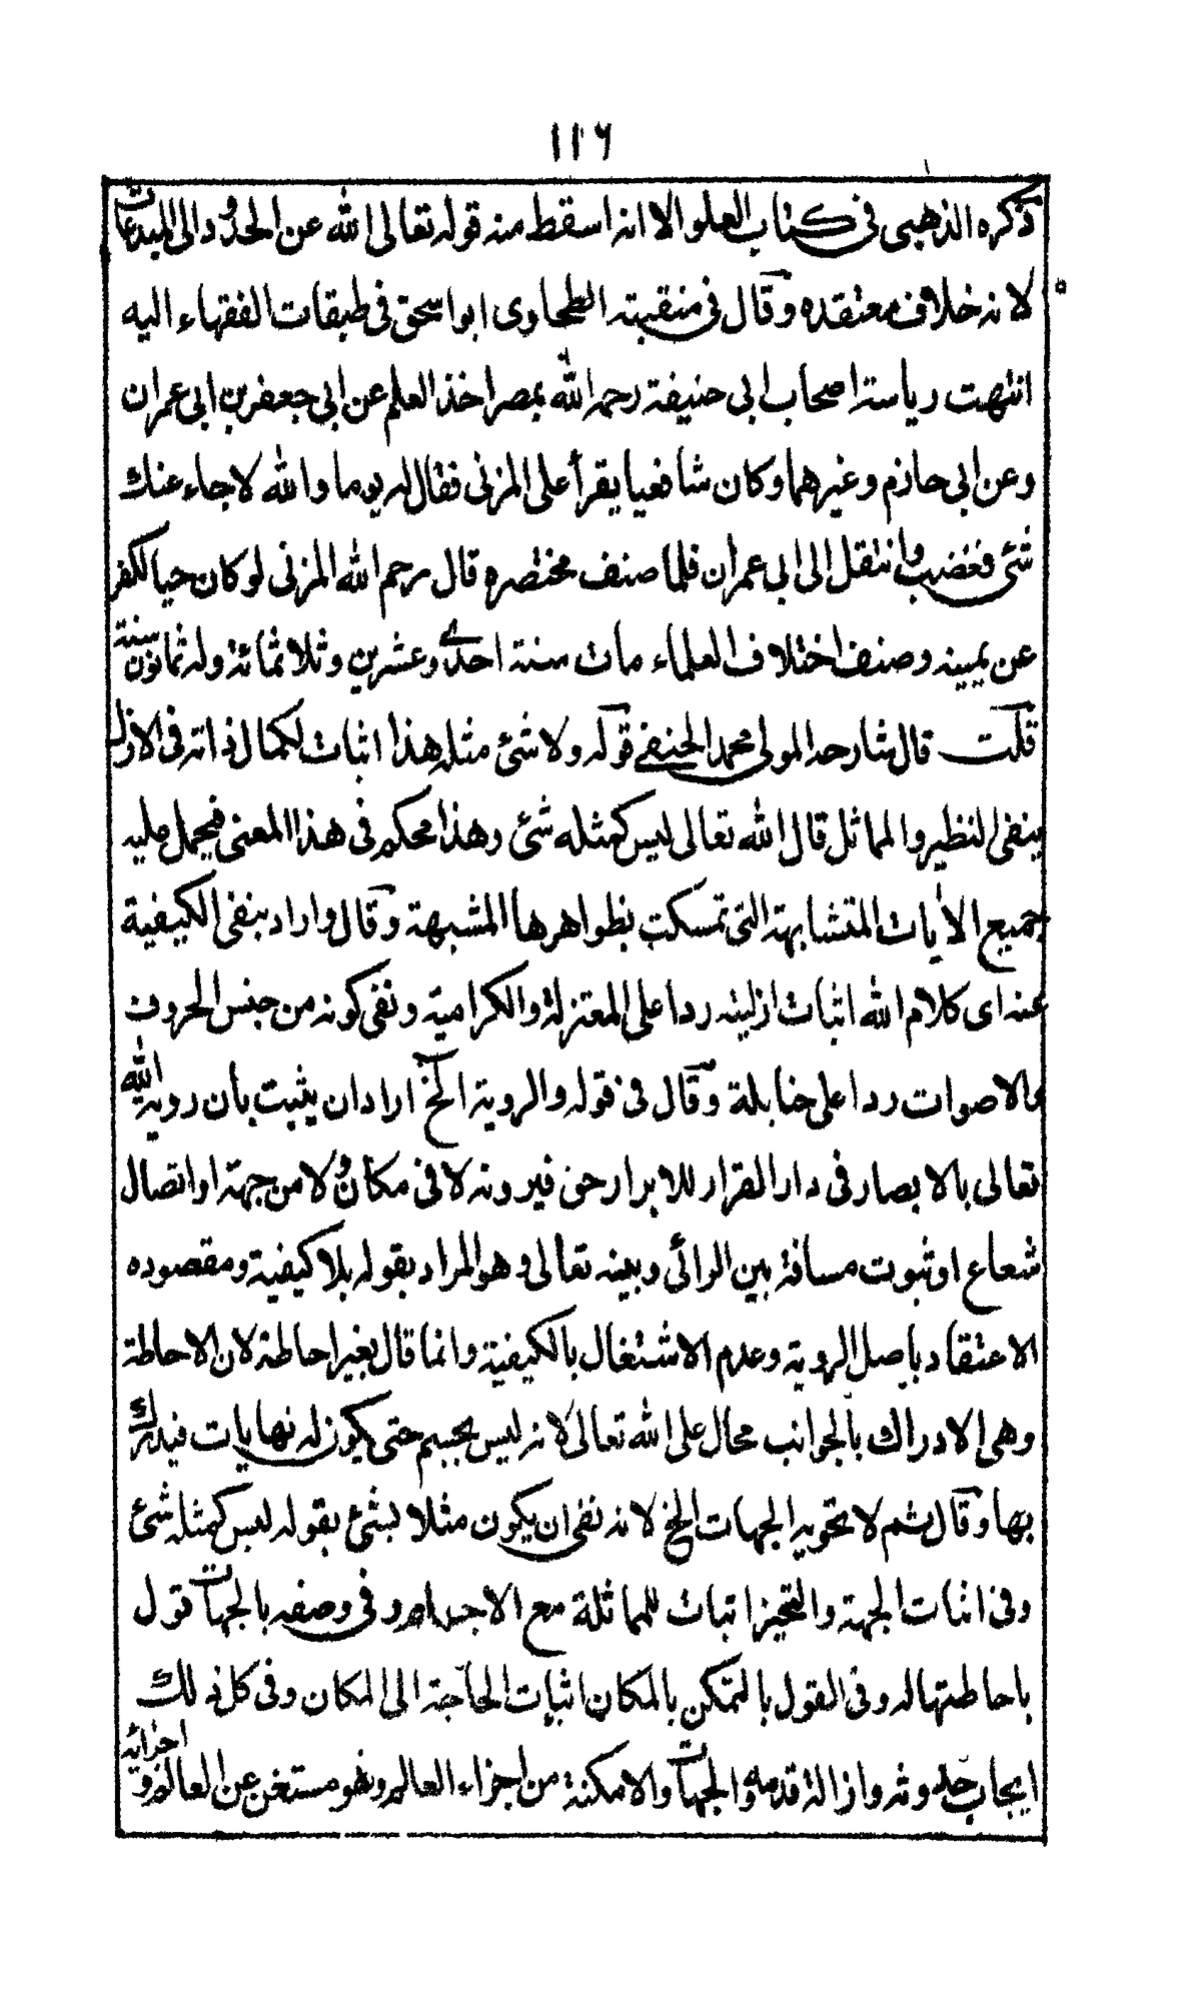 ١١٦
ذكره الذهبي في كتاب العلو الا انه اسقط منه قوله تعالى الله عن الحدود الى المبدعات
لانه خلاف معتقده وقال في منقبته الطحاوى ابو اسحق في طبقات الفقهاء اليه
انتهت رياسة اصحاب ابى حنيفة رحمه الله بمصر اخذ العلم عن ابى جعفر بن ابى عمران
وعن ابى حازم وغيرهما وكان شافعيا يقرأ على المزنى فقال له يوما والله لا جاء عنك
شئ فغضب وانتقل الى ابى عمران فلما صنف مختصره قال رحم الله المزنى لو كان حيا لكفر
عن يمينه وصنف اختلاف العلماء مات سنة احدى وعشرين وثلاثمائة وله ثمانون سنة
قلت قال شارحه المولى محمد الحنفي قوله ولا شئ مثله هذا اثبات لكمال ذاته في الازل
ينفى النظير والمماثل قال الله تعالى ليس كمثله شئ وهذا محكم في هذا المعنى فيحمل عليه
جميع الأيات المتشابهة التى تمسكت بظواهرها المشبهة وقال واراد بنفى الكيفية
عنه اى كلام الله اثبات ازليته ردا على المعتزلة والكرامية ونفى كونه من جنس الحروف
والاصوات ردا على حنابلة وقال في قوله والروية الخ اراد ان يثبت بأن روية الله
تعالى بالابصار فى دار القرار للابرار حق فيرونه لا في مكان ولا من جهة او اتصال
شعاع او ثبوت مسافة بين الرائى وبينه تعالى وهو المراد بقوله بلا كيفية ومقصوده
الاعتقاد باصل الروية وعدم الاشتغال بالكيفية وانما قال بغير احاطة لان الاحاطة
وهى الادراك بالجوانب محال على الله تعالى لانه ليس بجسم حتى يكون له نهايات فيدرك
بها وقال ثم لا تحويه الجهات الخ لانه نفى ان يكون مثلا لشئ بقوله ليس كمثله شئ
وفى اثبات الجهة والتحيز اثبات للمماثلة مع الاجسام وفى وصفه بالجهات قول
باحاطتها له وفى القول بالتمكن بالمكان اثبات الحاجة الى المكان وفى كل ذلك
ايجاب حدوثه وازالة قدمه والجهات والامكنة من اجزاء العالم وهو مستغن عن العالم و اجزائه